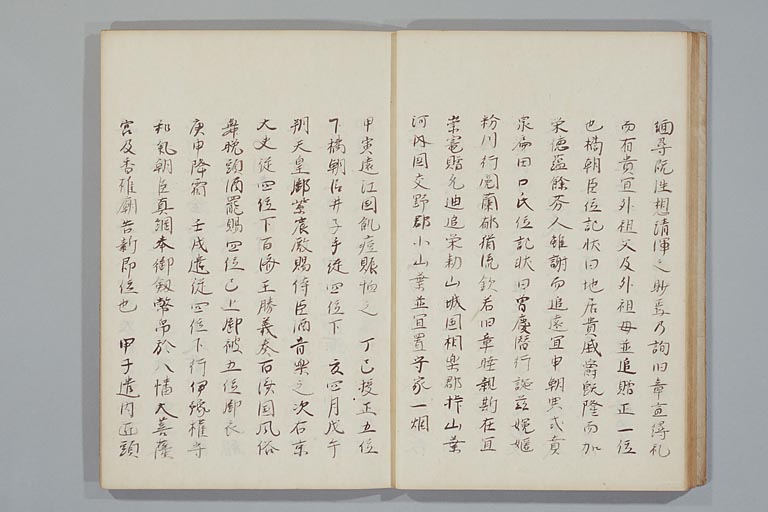 緬尋既往想清渾之眇焉乃詢旧章宜得礼
而有貴宜外祖父及外祖母並追贈正一位
也橘朝臣位記状曰地居貴戚爵既隆而加
栄徳蘊餘芬人雖謝而追遠宜申朝典式賁
泉扃田口氏位記状曰胃慶潜行誕茲婉嫕
粉川行閟蘭郁猶流欽若旧章睦親斯在宜
崇竃贈允迪追栄勅山城国相楽郡柞山葉
河内国交野郡小山葉並宜置守家一烟
甲寅遠江国飢疫賑恤之 丁巳授正五位
下橘朝臣井子手従四位下 夏四月戊午
朔天皇御紫宸殿賜侍臣酒音楽之次右京
大夫従四位下百済王勝義奏百済国風俗
舞晩頭酒罷賜四位已上御被五位御衣
庚申降雹 壬戌遣従四位下行伊豫権守
和気朝臣真綱奉御釼幣帛於八幡大菩薩
宮及香椎廟告新即位也 甲子遣内匠頭